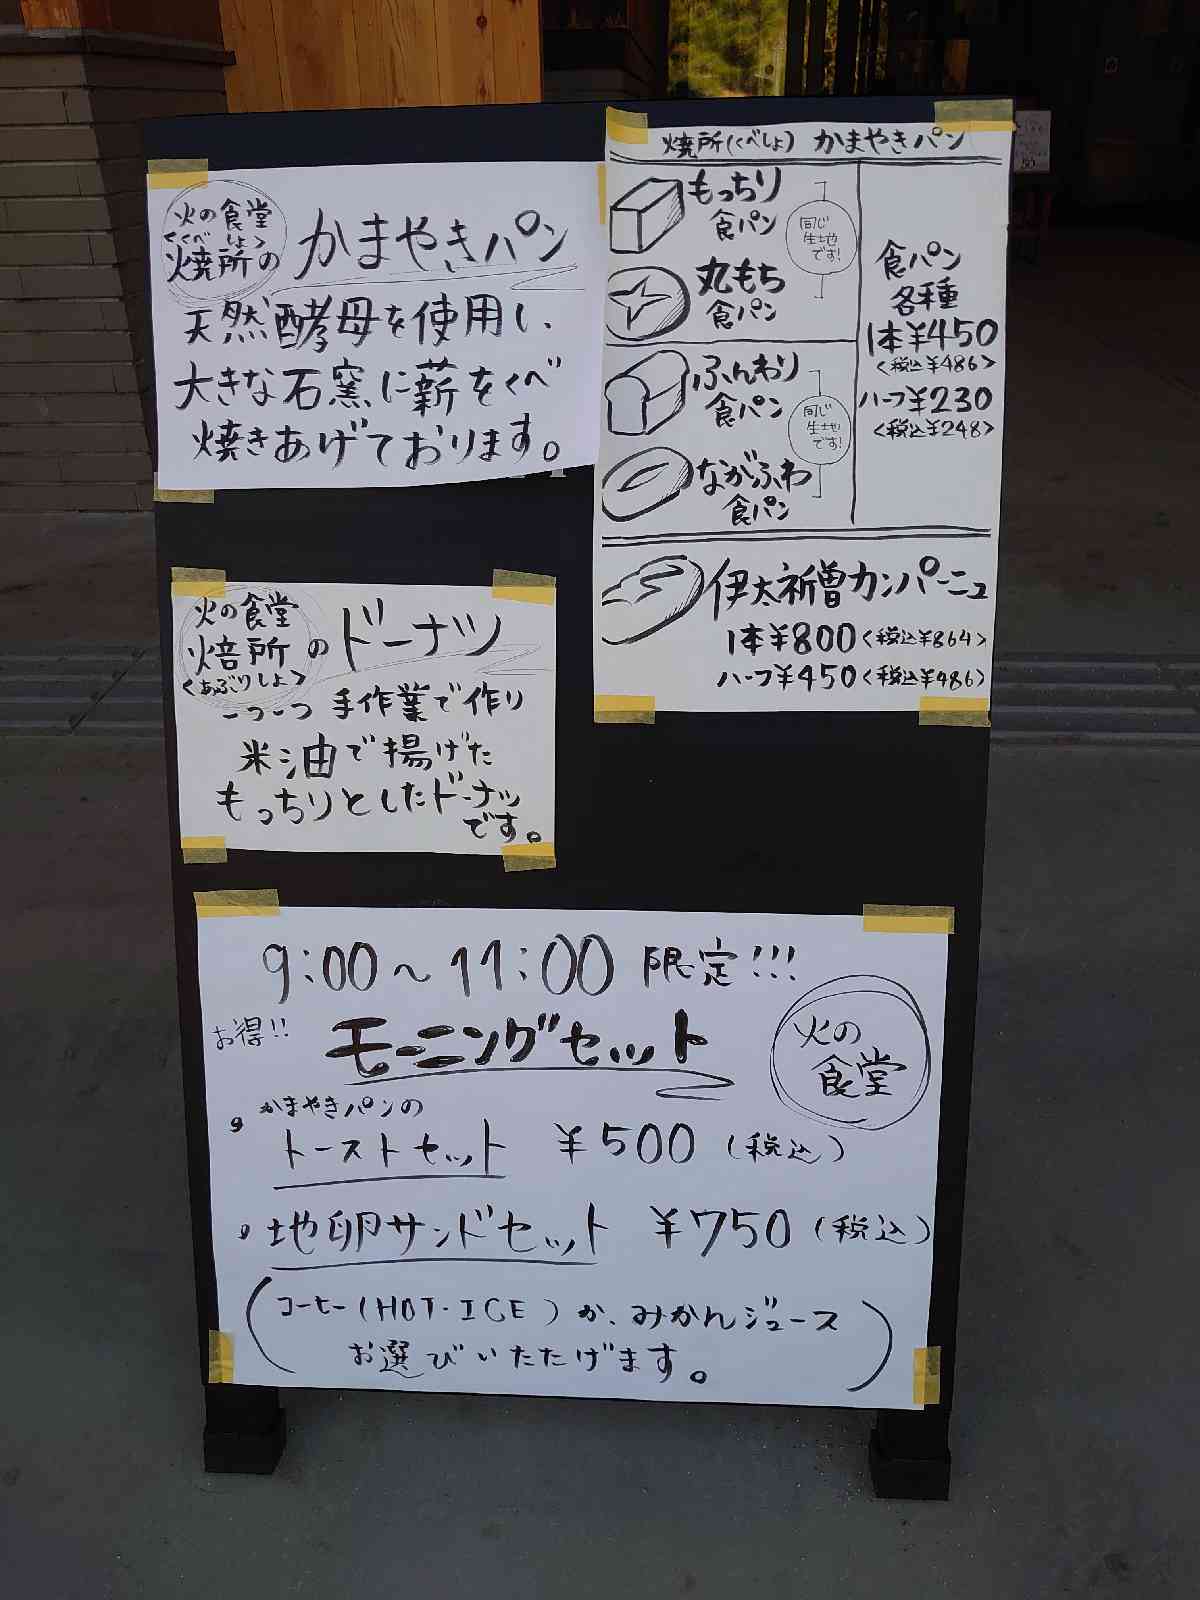 火の食堂
<くべしょ>
焼所の かまやきパン
天然酵母を使用し、
大きな石窯に薪をくべ
焼きあげております。
焼所(くべしょ) かまやきパン
もっちり
食パン
丸もち
食パン
同じ
生地
です!
ふんわり
食パン
ながふわ
食パン
同じ
生地
です!
食パン
各種
1本¥450
<税込¥486>
ハーフ¥230
<税込¥248>
伊太祈曽カンパーニュ
1本¥800<税込¥864>
ハーフ¥450<税込¥486>
火の食堂
焙所の ドーナツ
<あぶりしょ>
一つ一つ 手作業で作り
米油で揚げた
もっちりとしたドーナツ
です。
9:00~11:00 限定!!!
お得!! モーニングセット
火の
食堂
・かまやきパンの
トーストセット ¥500 (税込)
・地卵サンドセット ¥750 (税込)
(コーヒー(HOT・ICE)か、みかんジュース
お選びいただけます。)